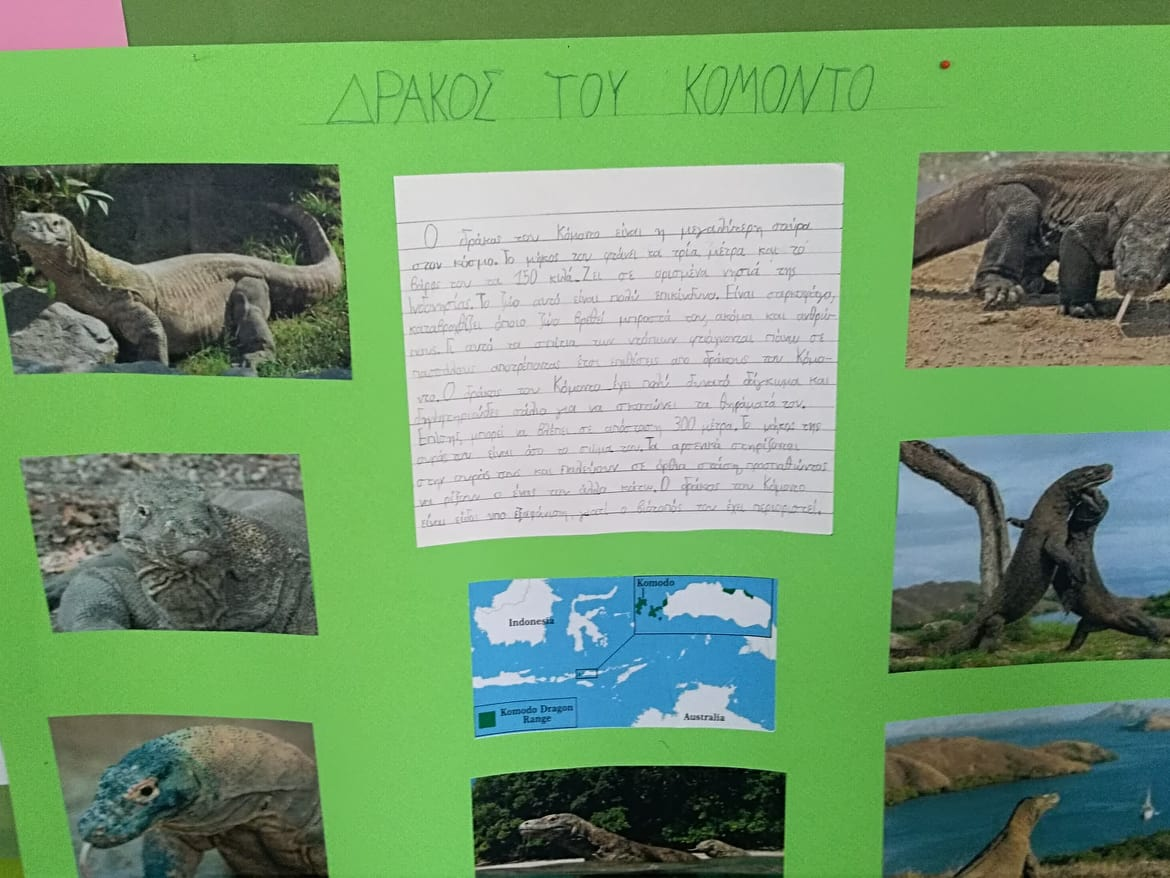 ΔΡΑΚΟΣ ΤΟΥ ΚΟΜΟΝΤΟ
Ο δράκος του Κόμοντο είναι η μεγαλύτερη σαύρα
στον κόσμο. Το μήκος του φτάνει τα τρία μέτρα και το
βάρος του τα 150 κιλά. Ζει σε ορισμένα νησιά της
Ινδονησίας. Το ζώο αυτό είναι πολύ επικίνδυνο. Είναι σαρκοφάγο,
καταβροχθίζει όποιο ζώο βρεθεί μπροστά του, ακόμα και ανθρώ-
πους. Γι αυτό τα σπίτια των ντόπιων φτιάχνονται πάνω σε
πασσάλους αποτρέποντας έτσι επιθέσεις απο δράκους του Κόμο-
ντο. Ο δράκος του Κόμοντο έχει πολύ δυνατό δάγκωμα και
δηλητηριώδες σάλιο για να σκοτώνει τα θηράματά του.
Επίσης, μπορεί να βλέπει σε απόσταση 300 μέτρα. Το μήκος της
ουράς του είναι όσο το σώμα του. Τα αρσενικά στηρίζονται
στην ουράς τους και παλεύουν σε όρθια στάση προσπαθώντας
να ρίξουν ο ένας τον άλλο κάτω. Ο δράκος του Κόμοντο
είναι είδος υπο εξαφάνιση γιατί ο βιότοπός του έχει περιοριστεί.
Komodo
Indonesia
Komodo Dragon
Range
Australia